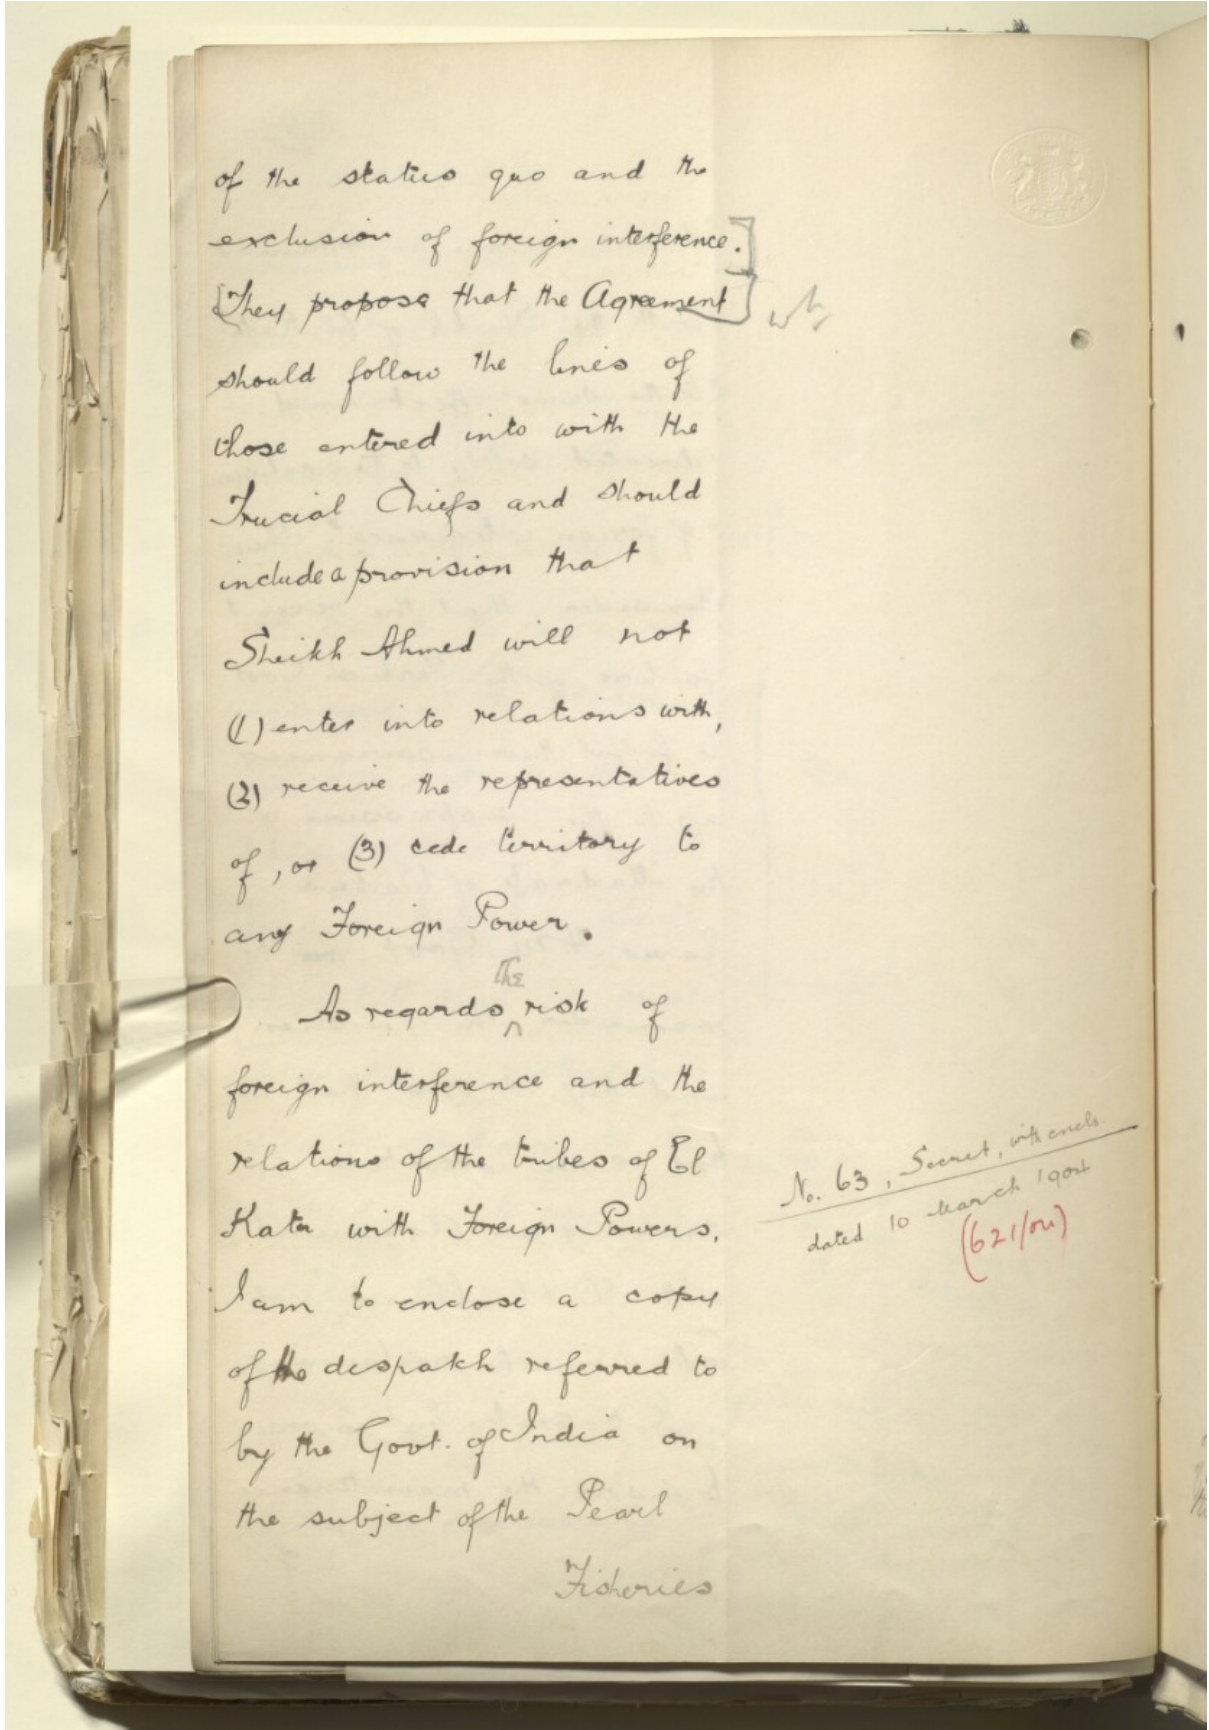 of the status quo and the
exclusion of foreign interference.]
[They propose that the Agreement]
should follow the lines of
those entered into with the
Trucial Chiefs and should
include a provision that
Sheikh Ahmed will not
(1) enter into relations with,
(2) receive the representatives
of, or (3) cede territory to
any Foreign Power.
the
As regards ^ risk of
foreign interference and the
relations of the tribes of El
Katr with Foreign Powers.
I am to enclose a copy
of the despatch referred to
by the Govt. of India on
the subject of the Pearl
Fisheries
No. 63, Secret, with encls.
dated 10 March 1904
(621/04)